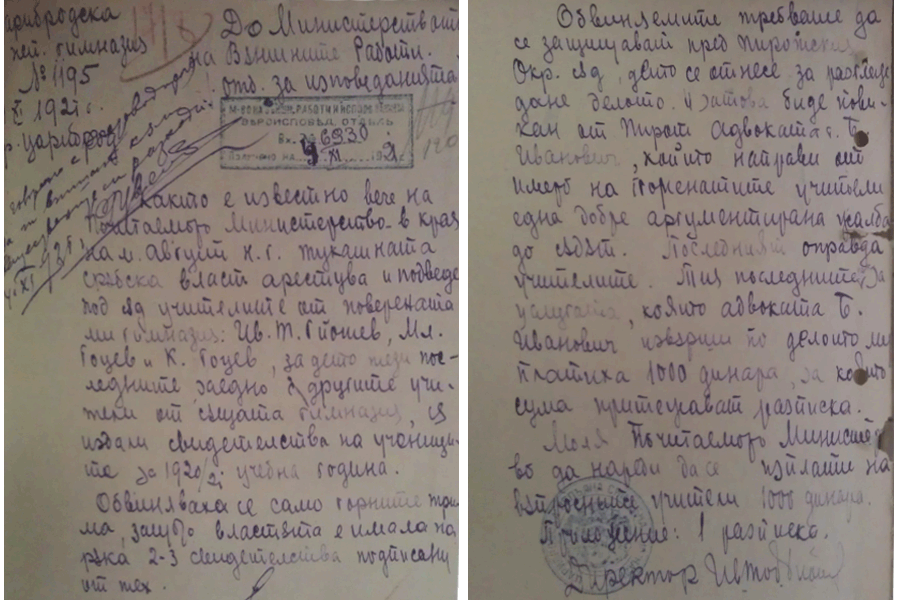 Царибродска
гимназия
№ 1195
1921 г.
гр. Цариброд
До Министерството
на Външните Работи.
отд. за изповеданията
ВЕРОИСПОВѢД. ОТДѢЛЪ
Вх. № 6930
Получено на 4 XI 192 1
Както е известно вече на
Почитаемото Министерство в края
на м. Август н. г. тукашната
сръбска власт арестува и подведе
под съд учителите от поверената
ми гимназия: Ив. Т. Гпошев, Мл.
Гоцев и К. Гоцев, за дето тези пос-
ледните заедно с другите учи-
тели от същата гимназия, са
издали свидетелства на ученици-
те за 1920/21 учебна година.
Обвиняваха се само горните три-
ма, защото властьта е имала на
ръка 2-3 свидетелства подписани
от тех.
Обвиняемите требваше да
се защищават пред Пиротския
Окр. съд, дето се отнесе за разгле-
дане делото. И затова биде пови-
кан от Пирот Адвоката г. Б.
Иванович, който направи от
името на поменатите учители
една добре аргументирана жалба
до съдът. Последният оправда
учителите. Тия последните, за
услугата, която адвоката Б.
Иванович извърши по делото им
платиха 1000 динара, за които
сума притежават разписка.
Моля Почитаемото Министерст-
во да нареди да се изплати на
въпросните учители 1000 динара.
Приложение: 1 разписка.
Директор